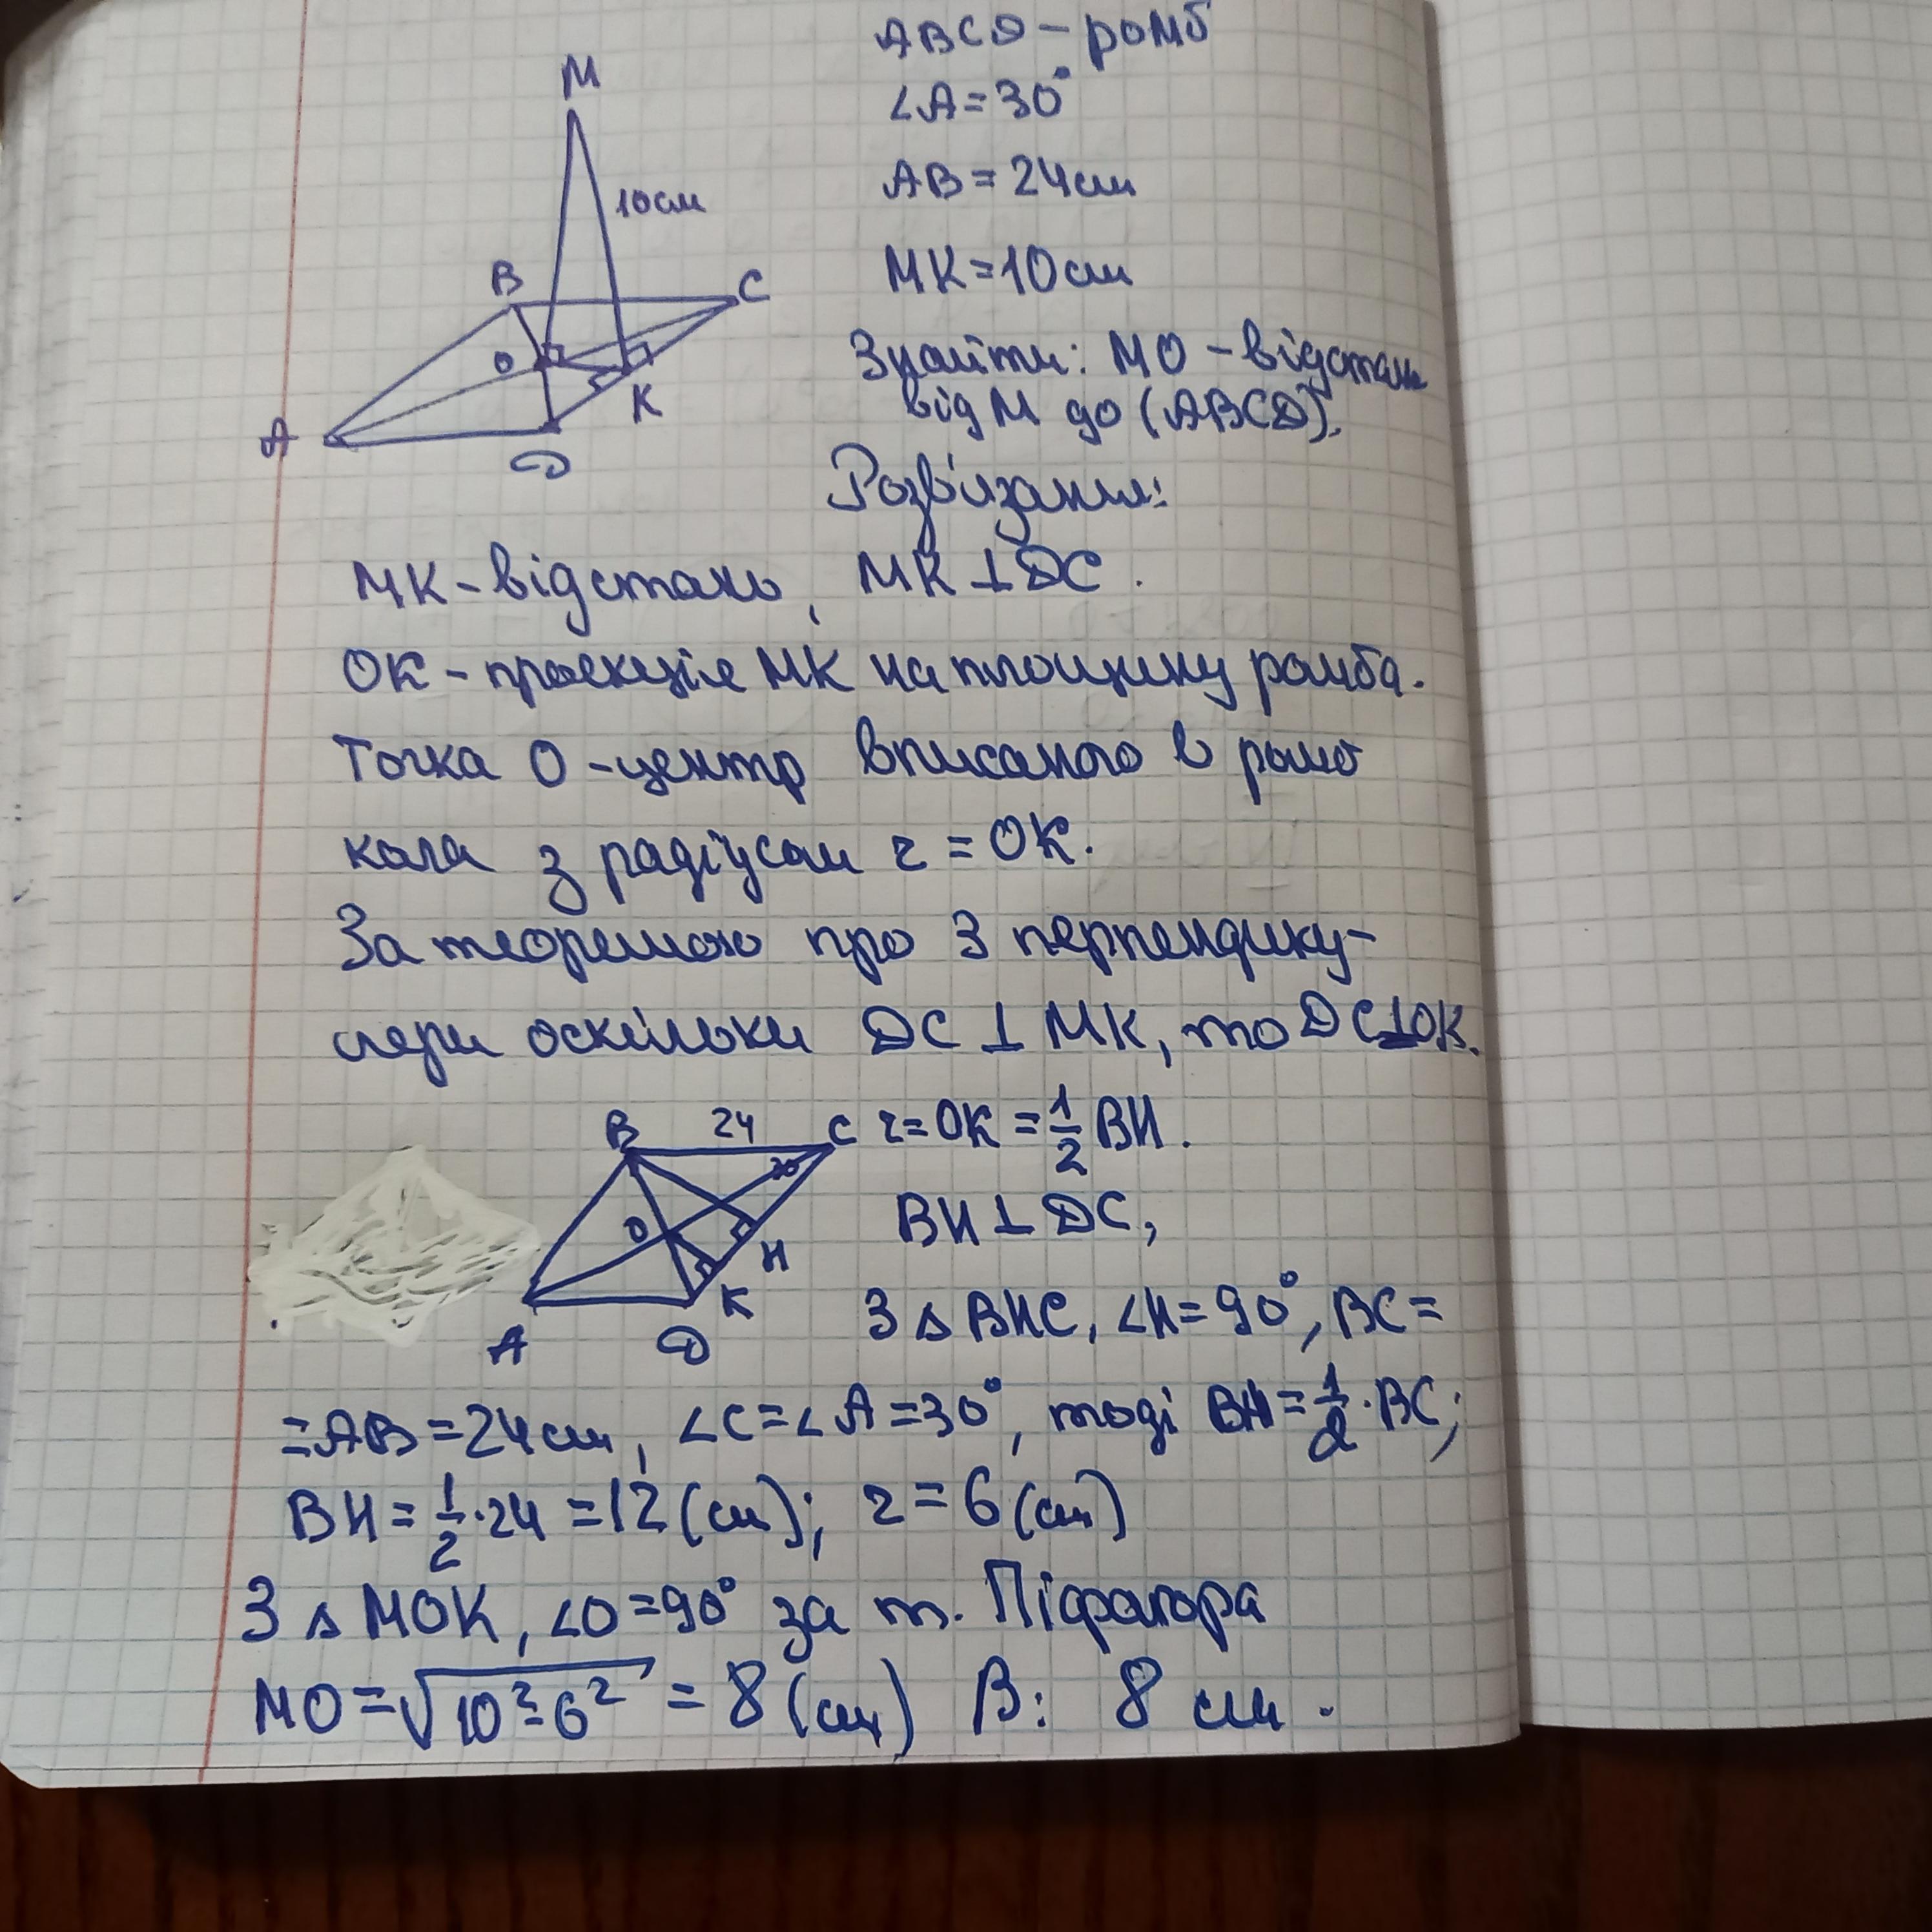 M
10см
B
C
O
K
A
D
ABCD – ромб
∠A = 30°
AB = 24см
MK = 10см
Знайти: MO – відстань
від M до (ABCD).
Розв'язання:
MK – відстань, MK ⊥ DC.
OK – проекція MK на площину ромба.
Точка O – центр вписаного в ромб
кола з радіусом r = OK.
За теоремою про 3 перпендику-
ляри оскільки DC ⊥ MK, то DC ⊥ OK.
B 24 C
30
O
H
K
A D
r = OK = 1/2 BH.
BH ⊥ DC,
З △ BHC, ∠H = 90°, BC =
= AB = 24см, ∠C = ∠A = 30°, тоді BH = 1/2 · BC;
BH = 1/2 · 24 = 12 (см); r = 6 (см)
З △ MOK, ∠O = 90° за т. Піфагора
MO = √10² - 6² = 8 (см) В: 8 см.